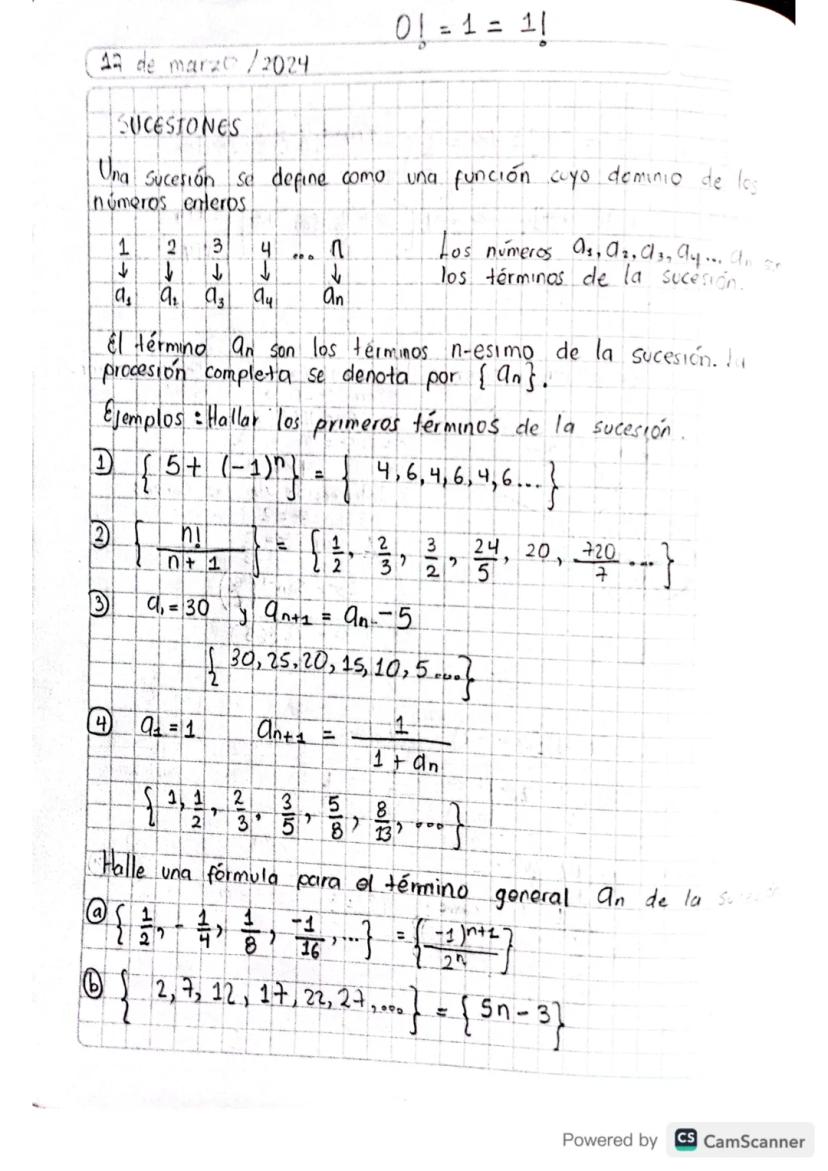 0! = 1 = 1!
12 de marzo/2024
SUCESIONES
Una sucesión se define como una función cuyo dominio de los
números enteros
1 2 3 4 ... n
↓ ↓ ↓ ↓ ↓
a₁ a₂ a₃ a₄ an
Los números a₁, a₂, a₃, a₄... an
los términos de la sucesión.
El término an son los términos n-esimo de la sucesión. La
procesión completa se denota por {an}.
Ejemplos: Hallar los primeros términos de la sucesión.
① {5 + (-1)ⁿ} = {4, 6, 4, 6, 4, 6...}
② {n!/(n + 1)} = {1/2, 2/3, 3/2, 24/5, 20, 720/7 ...}
③ a₁ = 30 y aₙ₊₁ = an - 5
{30, 25, 20, 15, 10, 5 ...}
④ a₁ = 1 aₙ₊₁ = 1/(1 + an)
{1, 1/2, 2/3, 3/5, 5/8, 8/13, ...}
Halle una fórmula para el término general an de la
ⓐ {1/2, -1/4, 1/8, -1/16, ...} = {-1)ⁿ⁺¹/2ⁿ}
ⓑ {2, 7, 12, 17, 22, 27, ...} = {5n - 3}
Powered by CS CamScanner